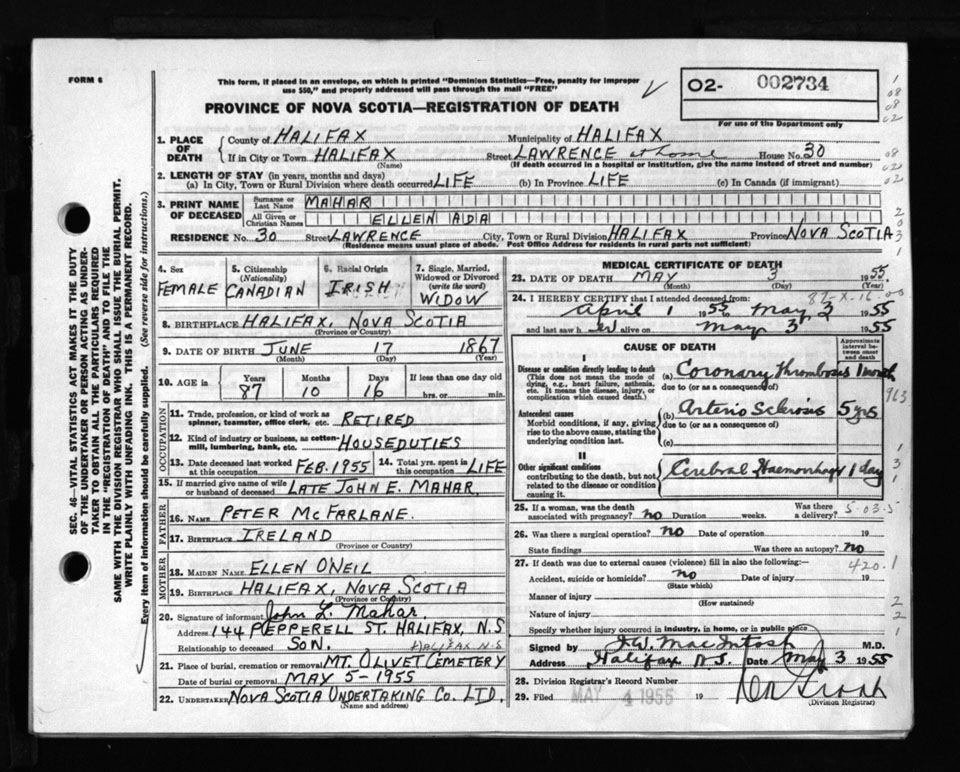 FORM 6
This form, if placed in an envelope, on which is printed "Dominion Statistics—Free, penalty for improper
use $50," and properly addressed will pass through the mail "FREE"
PROVINCE OF NOVA SCOTIA—REGISTRATION OF DEATH
O2- 002734
For use of the Department only
1. PLACE OF DEATH
County of HALIFAX Municipality of HALIFAX
If in City or Town HALIFAX Street LAWRENCE at home House No. 30
(Name) (If death occurred in a hospital or institution, give the name instead of street and number)
2. LENGTH OF STAY (in years, months and days)
(a) In City, Town or Rural Division where death occurred LIFE (b) In Province LIFE (c) In Canada (if immigrant)
3. PRINT NAME OF DECEASED
Surname or Last Name MAHAR
All Given or Christian Names ELLEN ADA
RESIDENCE No. 30 Street LAWRENCE City, Town or Rural Division HALIFAX Province NOVA SCOTIA
(Residence means usual place of abode. Post Office Address for residents in rural parts not sufficient)
4. Sex FEMALE
5. Citizenship (Nationality) CANADIAN
6. Racial Origin IRISH
7. Single, Married, Widowed or Divorced (write the word) WIDOW
8. BIRTHPLACE HALIFAX, NOVA SCOTIA
(Province or Country)
9. DATE OF BIRTH JUNE 17 1867
(Month) (Day) (Year)
10. AGE in Years Months Days If less than one day old
87 10 16 hrs. or min.
OCCUPATION
11. Trade, profession, or kind of work as spinner, teamster, office clerk, etc. RETIRED
12. Kind of industry or business, as cotten-mill, lumbering, bank, etc. HOUSEDUTIES
13. Date deceased last worked at this occupation FEB. 1955 14. Total yrs. spent in this occupation LIFE
15. If married give name of wife or husband of deceased LATE JOHN E. MAHAR.
FATHER
16. NAME PETER McFARLANE.
17. BIRTHPLACE IRELAND
(Province or Country)
MOTHER
18. MAIDEN NAME ELLEN O'NEIL
19. BIRTHPLACE HALIFAX, NOVA SCOTIA
(Province or Country)
20. Signature of informant John L. Mahar.
Address 144 PEPPERELL ST. HALIFAX, N.S
Relationship to deceased SON. HALIFAX N.S
21. Place of burial, cremation or removal MT. OLIVET CEMETERY
Date of burial or removal MAY 5-1955
22. UNDERTAKER NOVA SCOTIA UNDERTAKING CO. LTD.
(Name and address)
MEDICAL CERTIFICATE OF DEATH
23. DATE OF DEATH MAY 3 1955
(Month) (Day) (Year)
24. I HEREBY CERTIFY that I attended deceased from:
April 1 1955 to May 3 1955
and last saw her alive on May 3 1955
CAUSE OF DEATH
Approximate interval between onset and death
I
Disease or condition directly leading to death (a) Coronary Thrombosis 1 month
(This does not mean the mode of dying, e.g., heart failure, asthenia, etc. It means the disease, injury, or complication which caused death.)
due to (or as a consequence of)
Antecedent causes (b) Arterio Sclerosis 5 yrs
Morbid conditions, if any, giving rise to the above cause, stating the underlying condition last.
due to (or as a consequence of)
(c)
II
Other significant conditions contributing to the death, but not related to the disease or condition causing it. Cerebral Haemorrhage 1 day
25. If a woman, was the death associated with pregnancy? no Duration weeks. Was there a delivery?
26. Was there a surgical operation? no Date of operation 19
State findings Was there an autopsy? no
27. If death was due to external causes (violence) fill in also the following:—
Accident, suicide or homicide? no Date of injury 19
(State which)
Manner of injury
(How sustained)
Nature of injury
Specify whether injury occurred in industry, in home, or in public place
Signed by W. MacIntosh M.D.
Address Halifax N.S. Date May 3 1955
28. Division Registrar's Record Number
29. Filed MAY 4 1955 19
(Division Registrar)
420.1
SEC. 46—VITAL STATISTICS ACT MAKES IT THE DUTY
OF THE UNDERTAKER OR PERSON ACTING AS UNDER-
TAKER TO OBTAIN ALL THE PARTICULARS REQUIRED
IN THE "REGISTRATION OF DEATH" AND TO FILE THE
SAME WITH THE DIVISION REGISTRAR WHO SHALL ISSUE THE BURIAL PERMIT.
WRITE PLAINLY WITH UNFADING INK. THIS IS A PERMANENT RECORD.
Every item of information should be carefully supplied. (See reverse side for instructions.)